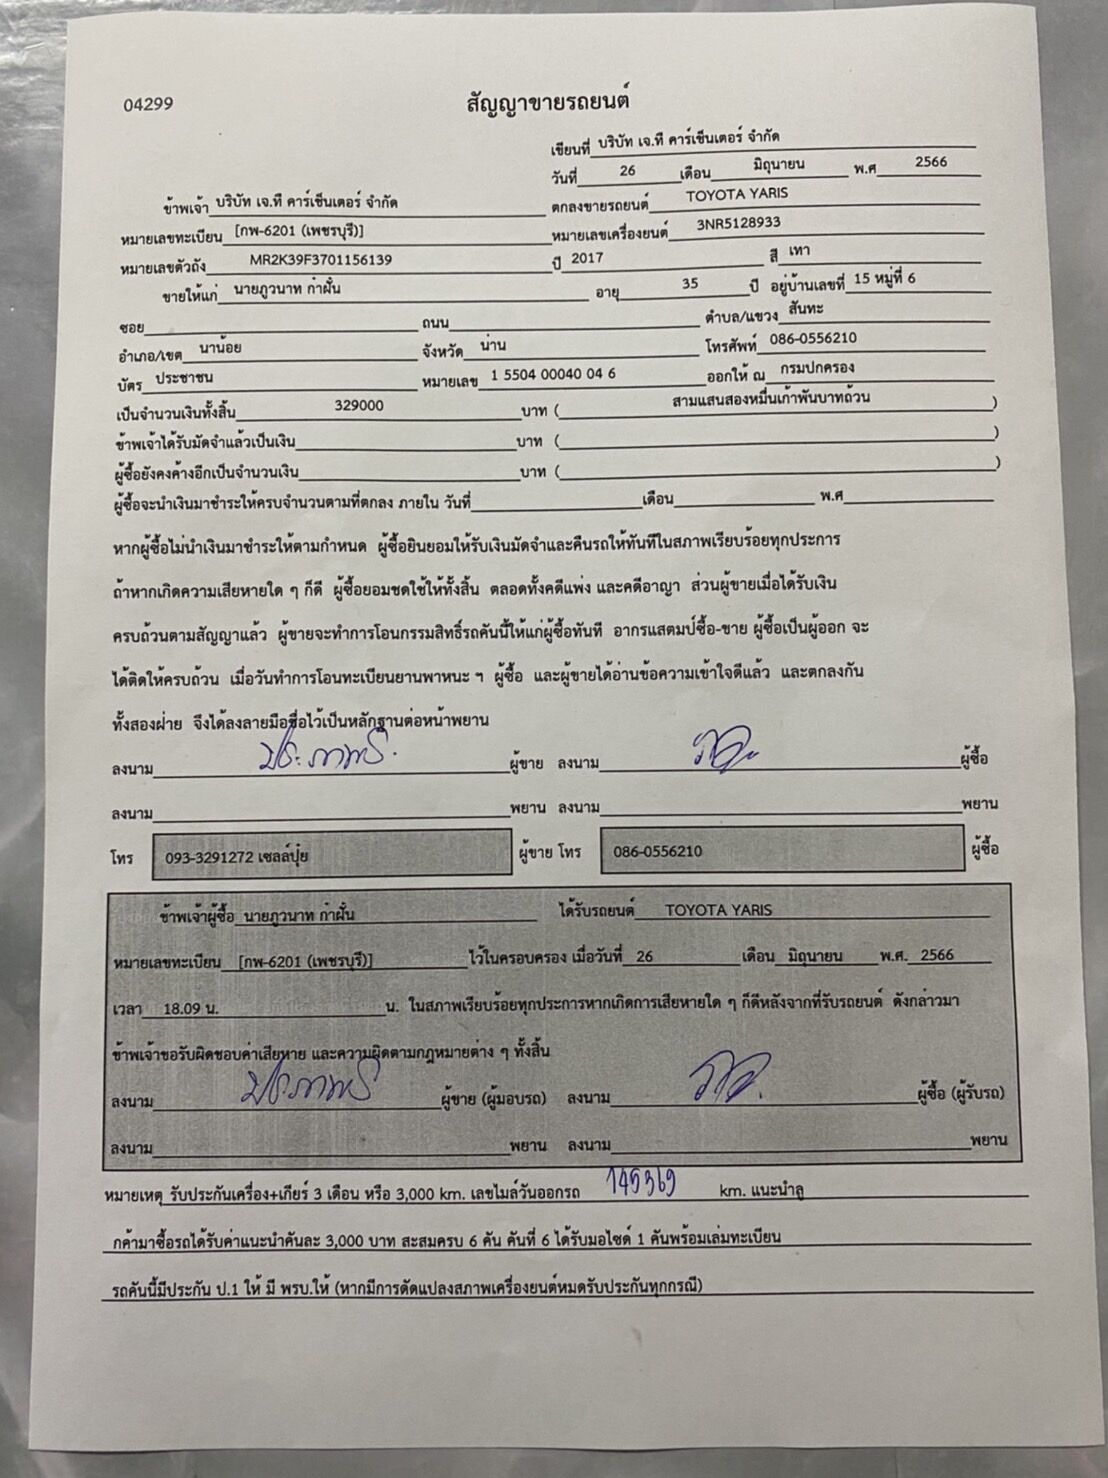 04299
สัญญาขายรถยนต์
เขียนที่ บริษัท เจ.ที คาร์เซ็นเตอร์ จำกัด
วันที่ 26 เดือน มิถุนายน พ.ศ 2566
ข้าพเจ้า บริษัท เจ.ที คาร์เซ็นเตอร์ จำกัด ตกลงขายรถยนต์ TOYOTA YARIS
หมายเลขทะเบียน [กพ-6201 (เพชรบุรี)] หมายเลขเครื่องยนต์ 3NR5128933
หมายเลขตัวถัง MR2K39F3701156139 ปี 2017 สี เทา
ขายให้แก่ นายภูวนาท ก๋าฝั้น อายุ 35 ปี อยู่บ้านเลขที่ 15 หมู่ที่ 6
ซอย ถนน ตำบล/แขวง สันทะ
อำเภอ/เขต นาน้อย จังหวัด น่าน โทรศัพท์ 086-0556210
บัตร ประชาชน หมายเลข 1 5504 00040 04 6 ออกให้ ณ กรมปกครอง
เป็นจำนวนเงินทั้งสิ้น 329000 บาท ( สามแสนสองหมื่นเก้าพันบาทถ้วน )
ข้าพเจ้าได้รับมัดจำแล้วเป็นเงิน บาท ( )
ผู้ซื้อยังคงค้างอีกเป็นจำนวนเงิน บาท ( )
ผู้ซื้อจะนำเงินมาชำระให้ครบจำนวนตามที่ตกลง ภายใน วันที่ เดือน พ.ศ
หากผู้ซื้อไม่นำเงินมาชำระให้ตามกำหนด ผู้ซื้อยินยอมให้รับเงินมัดจำและคืนรถให้ทันทีในสภาพเรียบร้อยทุกประการ
ถ้าหากเกิดความเสียหายใด ๆ ก็ดี ผู้ซื้อยอมชดใช้ให้ทั้งสิ้น ตลอดทั้งคดีแพ่ง และคดีอาญา ส่วนผู้ขายเมื่อได้รับเงิน
ครบถ้วนตามสัญญาแล้ว ผู้ขายจะทำการโอนกรรมสิทธิ์รถคันนี้ให้แก่ผู้ซื้อทันที อากรแสตมป์ซื้อ-ขาย ผู้ซื้อเป็นผู้ออก จะ
ได้ติดให้ครบถ้วน เมื่อวันทำการโอนทะเบียนยานพาหนะ ฯ ผู้ซื้อ และผู้ขายได้อ่านข้อความเข้าใจดีแล้ว และตกลงกัน
ทั้งสองฝ่าย จึงได้ลงลายมือชื่อไว้เป็นหลักฐานต่อหน้าพยาน
ลงนาม ผู้ขาย ลงนาม ผู้ซื้อ
ลงนาม พยาน ลงนาม พยาน
โทร 093-3291272 เซลล์ปุ๋ย ผู้ขาย โทร 086-0556210 ผู้ซื้อ
ข้าพเจ้าผู้ซื้อ นายภูวนาท ก๋าฝั้น ได้รับรถยนต์ TOYOTA YARIS
หมายเลขทะเบียน [กพ-6201 (เพชรบุรี)] ไว้ในครอบครอง เมื่อวันที่ 26 เดือน มิถุนายน พ.ศ. 2566
เวลา 18.09 น. น. ในสภาพเรียบร้อยทุกประการหากเกิดการเสียหายใด ๆ ก็ดีหลังจากที่รับรถยนต์ ดังกล่าวมา
ข้าพเจ้าขอรับผิดชอบค่าเสียหาย และความผิดตามกฎหมายต่าง ๆ ทั้งสิ้น
ลงนาม ผู้ขาย (ผู้มอบรถ) ลงนาม ผู้ซื้อ (ผู้รับรถ)
ลงนาม พยาน ลงนาม พยาน
หมายเหตุ รับประกันเครื่อง+เกียร์ 3 เดือน หรือ 3,000 km. เลขไมล์วันออกรถ 145369 km. แนะนำลู
กค้ามาซื้อรถได้รับค่าแนะนำคันละ 3,000 บาท สะสมครบ 6 คัน คันที่ 6 ได้รับมอไซด์ 1 คันพร้อมเล่มทะเบียน
รถคันนี้มีประกัน ป.1 ให้ มี พรบ.ให้ (หากมีการดัดแปลงสภาพเครื่องยนต์หมดรับประกันทุกกรณี)